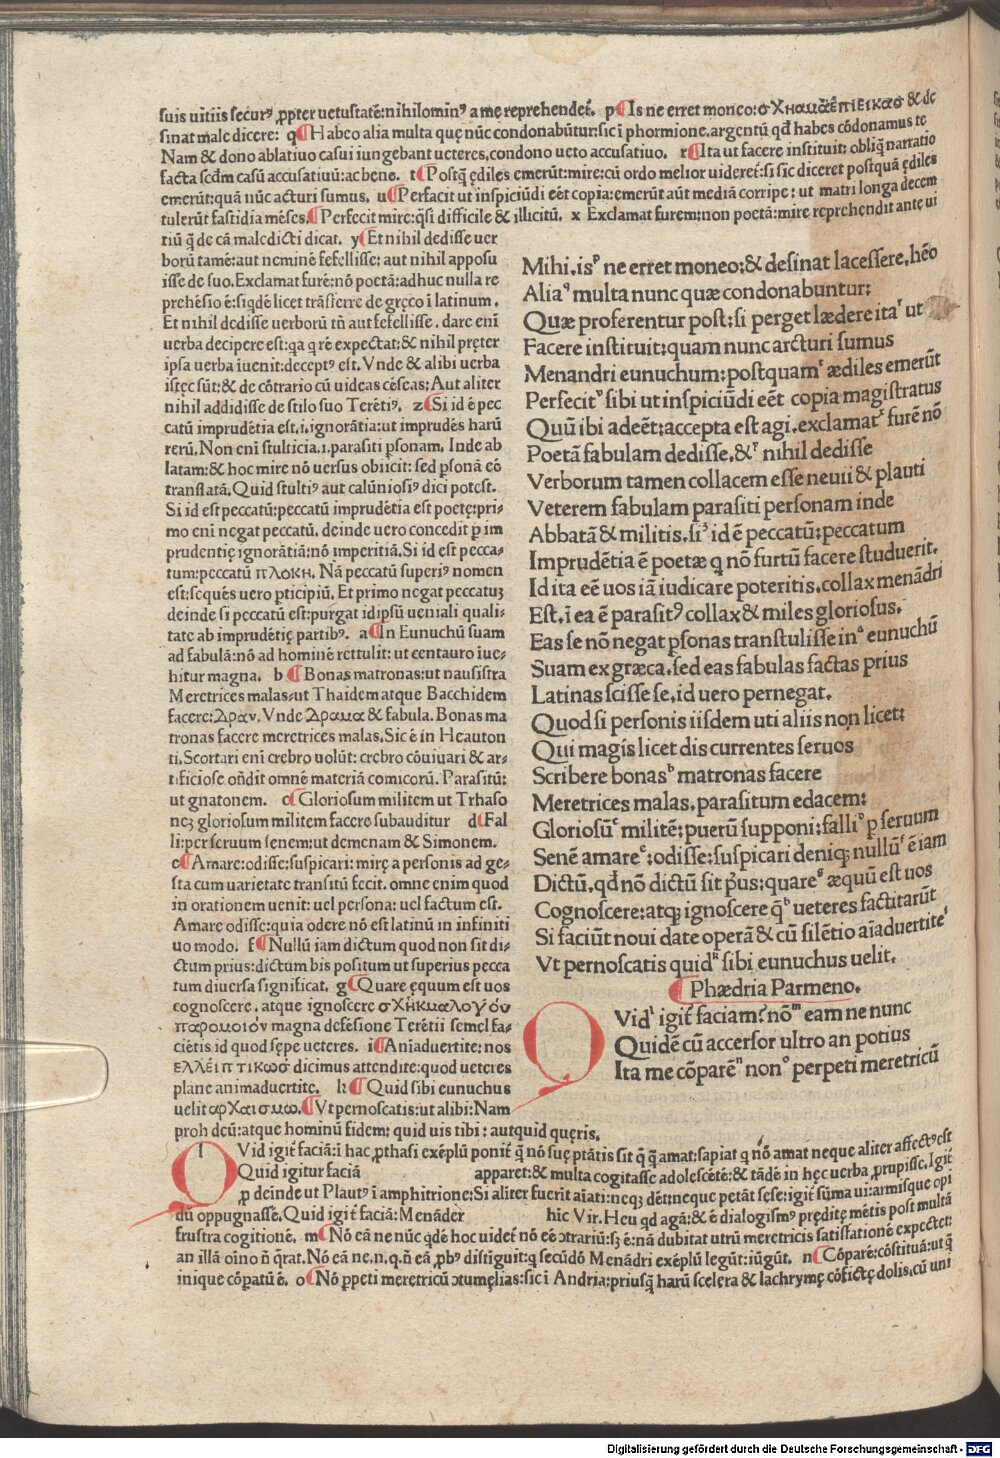 suis uitiis securꝰ ꝓpter uetustatē: nihilominꝰ a me reprehendet̄. p¶Is ne erret moneo: σχημα ἐπιεικασ & de
sinat male dicere: q¶Habeo alia multa quę nūc condonabūtur: sic ī phormione. argentū qd̄ habes cōdonamus te
Nam & dono ablatiuo casui iungebant ueteres, condono uero accusatiuo. r¶Ita ut facere instituit: obliq̄ narratio
facta scdm̄ casū accusatiuū: ac bene. t¶Postq̄ ędiles emerūt: mire: cū ordo melior uideret̄: si sic diceret postquā ędiles
emerūt: quā nūc acturi sumus. u¶Perfacit ut inspiciūdi eēt copia: emerūt aūt mediā corripe: ut matri longa decem
tulerūt fastidia mēses. ¶Perfecit mire: qsi difficile & illicitū. x Exclamat furem: non poetā: mire reprehendit ante ui
tiū q̄ de eā maledicti dicat. y¶Et nihil dedisse uer
borū tamē: aut neminē fefellisse: aut nihil apposu
isse de suo. Exclamat furē: nō poetā: adhuc nulla re
prehēsio ē: siqdē licet trāsferre de gręco ī latinum.
Et nihil dedisse uerborū tn̄ aut fefellisse. dare enī
uerba decipere est: qa q rē expectat: & nihil pręter
ipsa uerba iuenit: deceptꝰ est. Vnde & alibi uerba
istęc sūt: & de cōtrario cū uideas cēseas: Aut aliter
nihil addidisse de stilo suo Terētiꝰ. z¶Si id ē pec
catū imprudētia est. i. ignorātia: ut imprudēs harū
rerū. Non enī stulticia. i. parasiti ꝑsonam. Inde ab
latam: & hoc mire nō uersus obiicit: sed ꝑsonā eē
translatā. Quid stultiꝰ aut calūniosiꝰ dici potest.
Si id est peccatū: peccatū imprudētia est poetę: pri-
mo enī negat peccatū. deinde uero concedit ꝑ im
prudentię ignorātiā: nō imperitiā. Si id est pecca-
tum: peccatū πλοκη. Nā peccatū superiꝰ nomen
est: seqūes uero ꝑticipiū. Et primo negat peccatuꝫ
deinde si peccatū est: purgat idipsū ueniali quali-
tate ab imprudētię partibꝰ. a¶In Eunuchū suam
ad fabulā: nō ad hominē rettulit: ut centauro īue-
hitur magna. b ¶Bonas matronas: ut nausistra
Meretrices malas: ut Thaidem atque Bacchidem
facere: Δραν. Vnde Δραμα & fabula. Bonas ma
tronas facere meretrices malas. Sic ē in Heauton
ti. Scortari enī crebro uolūt: crebro cōuiuari & ar-
tificiose on̄dit omnē materiā comicorū. Parasitū:
ut gnatonem. c¶Gloriosum militem ut Trhaso
neꝫ gloriosum militem facere subauditur d¶Fal
li: per seruum senem: ut demenam & Simonem.
e¶Amare: odisse: suspicari: mirę a personis ad ge-
sta cum uarietate transitū fecit. omne enim quod
in orationem uenit: uel persona: uel factum est.
Amare odisse: quia odere nō est latinū in infiniti
uo modo. f ¶Nullū iam dictum quod non sit di-
ctum prius: dictum bis positum ut superius pecca
tum diuersa significat. g¶Quare ęquum est uos
cognoscere. atque ignoscere σχηκμαλογόυ
παρομοιόν magna defēsione Terētii semel fa-
ciētis id quod sępe ueteres. i¶Aniaduertite: nos
ελλέιπτικωσ dicimus attendite: quod ueteres
plane animaduertite. h¶Quid sibi eunuchus
uelit αρχαισμω. ¶Vt pernoscatis: ut alibi: Nam
proh deū: atque hominū fidem: quid uis tibi: aut quid quęris.
Mihi. isᵖ ne erret moneo: & desinat lacessere. hēo
Alia�q multa nunc quæ condonabuntur:
Quæ proferentur post: si perget lædere itaʳ ut
Facere instituit: quam nunc arcturi sumus
Menandri eunuchum: postquamᵗ ædiles emerūt
Perfecitᵘ sibi ut inspiciūdi eēt copia magistratus
Quū ibi adeēt: accepta est agi. exclamatˣ furē nō
Poetā fabulam dedisse. &ʸ nihil dedisse
Verborum tamen collacem esse neuii & plauti
Veterem fabulam parasiti personam inde
Abbatā & militis. siᶻ id ē peccatū: peccatum
Imprudētia ē poetæ q nō furtū facere studuerit.
Id ita eē uos iā iudicare poteritis. collax menādri
Est. ī ea ē parasitꝰ collax & miles gloriosus.
Eas se nō negat ꝑsonas transtulisse inᵃ eunuchū
Suam ex græca. sed eas fabulas factas prius
Latinas scisse se. id uero pernegat.
Quod si personis iisdem uti aliis non licet:
Qui magis licet discurrentes seruos
Scribere bonasᵇ matronas facere
Meretrices malas. parasitum edacem:
Gloriosūᶜ militē: puerū supponi: falliᵈ ꝑ seruum
Senē amareᵉ: odisse: suspicari deniqꝫ nullūᶠ ē iam
Dictū. qd̄ nō dictū sit pr̄us: quareᵍ æquū est uos
Cognoscere: atqꝫ ignoscere q̄ʰ ueteres factitarūt
Si faciūt noui date operā & cū silētio aīaduertiteⁱ
Vt pernoscatis quid sibi eunuchus uelit.
¶ Phædria Parmeno.
Q Vidˡ igit̄ faciam? nōᵐ eam ne nunc
Quidē cū accersor ultro an potius
Ita me cōparēⁿ nonᵒ perpeti meretricū
Q l Vid igit̄ faciā: ī hac ꝓthasi exēplū ponit̄ q̄ nō suę ptātis sit q̄ q̄ amat: sapiat q nō amat neque aliter affectꝰ est
Quid igitur faciā apparet: & multa cogitasse adolescētē: & tādē in hęc uerba ꝓrupisse. Igit̄
ꝓ deinde ut Plautꝰ ī amphitrione: Si aliter fuerit aīati: neqꝫ dēt: neque petāt sese: igit̄ sūma ui: armisque opi
dū oppugnasse. Quid igit̄ faciā: Menāder hic Vir. Heu qd agā: & ē dialogismꝰ prędite mētis post multā
frustra cogitionē. m¶Nō eā ne nūc qdē hoc uidet̄ nō eē ꝯtrariū: sꝫ ē: nā dubitat utrū meretricis satisfationē expectet:
an illā oīno n̄ q̄rat. Nō eā ne. n. q. n̄ eā ꝓbꝰ distīguit: q secūdō Menādri exēplū legūt: iūgūt. n¶Cōparē: cōstituā: ut q̄
inique cōpatū ē. o¶Nō ꝑpeti meretricū ꝯtumęlias: sic ī Andria: priusq̄ harū scelera & lachrymę cōfictę dolis. cū uni
Digitalisierung gefördert durch die Deutsche Forschungsgemeinschaft - DFG